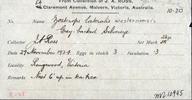 From Collection of J. A. ROSS,
"
Claremont Avenue, Malvern, Victoria, Australia.
No. 10-20
Name Zosterops lateralis westernensis
Grey-backed Silvereye
Collector J A Ross Set Mark
Date 29 November 1920. Eggs in clutch 3 Incubation
Locality Ringwood, Victoria
Remarks Nest 6' up in tea tree